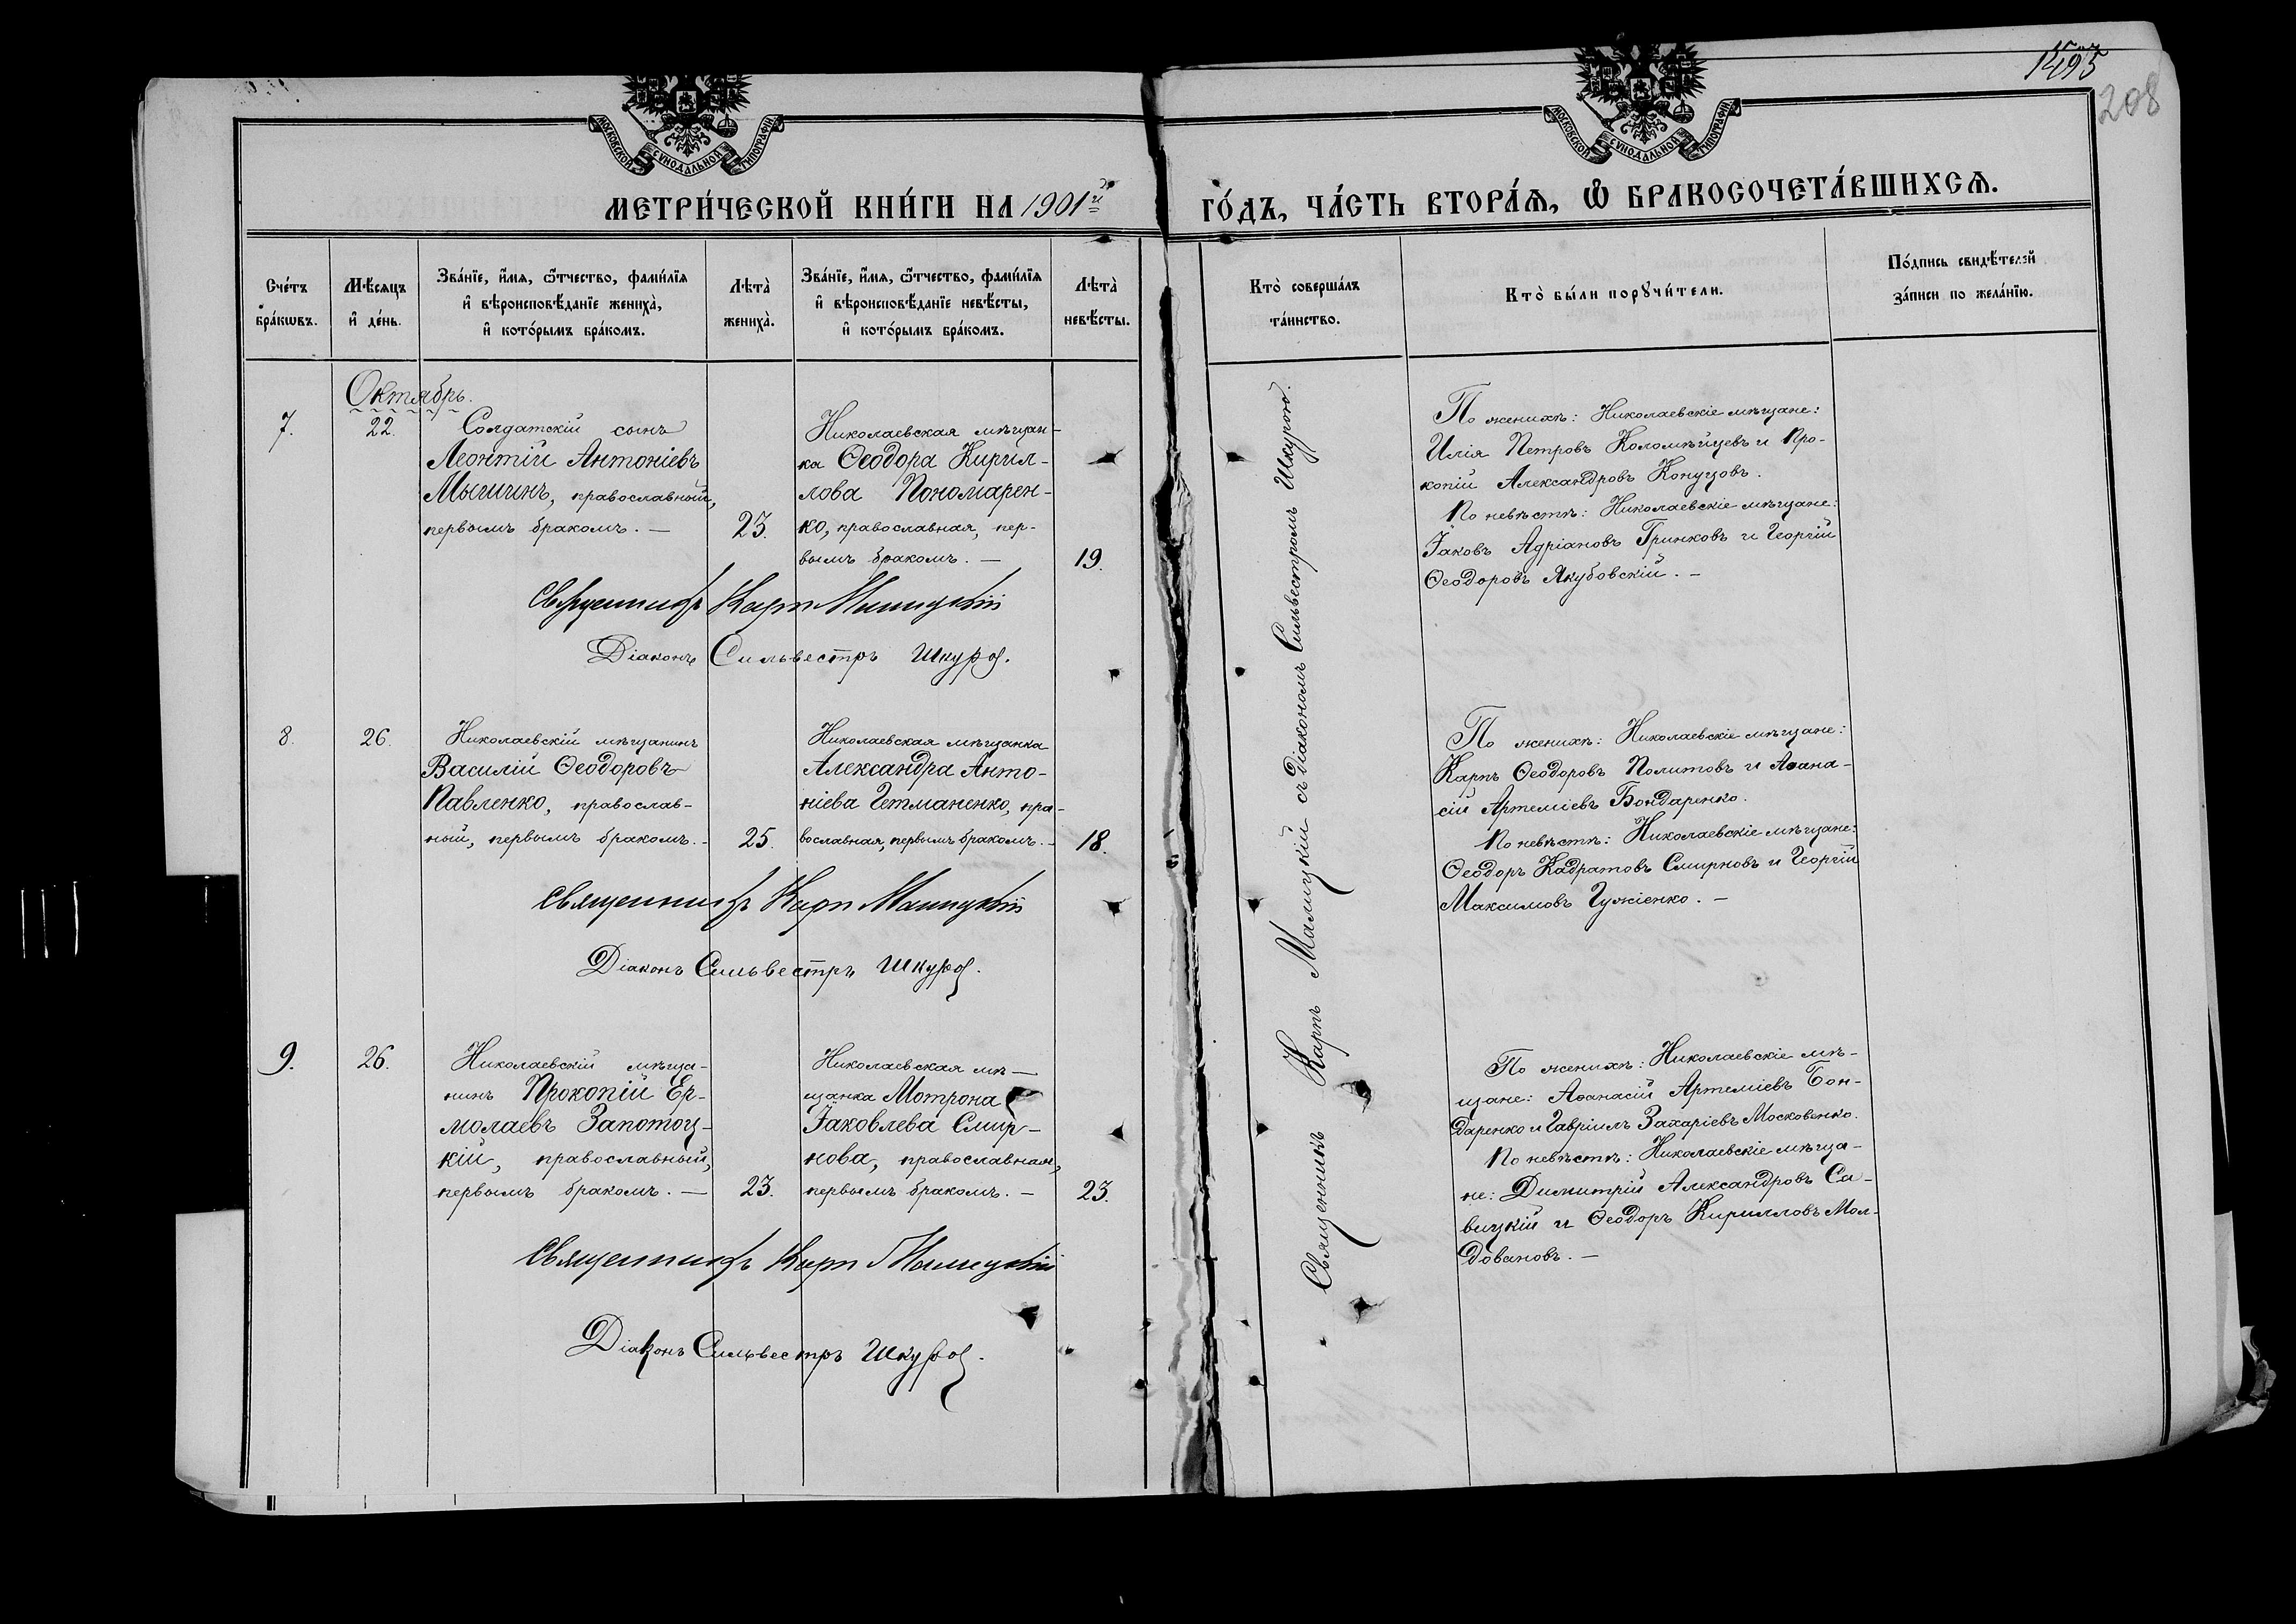 1495
208
МОСКОВСКОЙ СѴНОДАЛЬНОЙ ТИПОГРАФІИ
МОСКОВСКОЙ СѴНОДАЛЬНОЙ ТИПОГРАФІИ
МЕТРИ́ЧЕСКОЙ КНИ́ГИ НА 1901й
ГО́ДЪ, ЧА́СТЬ ВТОРА́Ѧ, Ѽ БРАКОСОЧЕТА́ВШИХСѦ.
Сче́тъ
бра́кѡвъ.
Мѣ́сѧцъ
и҆ де́нь.
Зва́нїе, и҆́мѧ, ѻ҆́тчество, фами́лїѧ
и҆ вѣроисповѣ́данїе жениха̀,
и҆ кото́рымъ бра́комъ.
Лѣта̀
жениха̀.
Зва́нїе, и҆́мѧ, ѻ҆́тчество, фами́лїѧ
и҆ вѣроисповѣ́данїе невѣ́сты,
и҆ кото́рымъ бра́комъ.
Лѣта̀
невѣ́сты.
Кто̀ соверша́лъ
та́инство.
Кто̀ бы́ли порꙋчи́тели.
По́дпись свидѣ́телей
за́писи по жела́нїю.
Октябрь.
7.
22.
Солдатскій сынъ
Леонтій Антоніевъ
Мышинъ, православный,
первымъ бракомъ. —
23.
Николаевская мѣщан-
ка Ѳеодора Кирил-
лова Пономарен-
ко, православная, пер-
вымъ бракомъ. —
19.
Священникъ Карп Малицкій
Діаконъ Сильвестръ Шкурой.
По женихѣ: Николаевскіе мѣщане:
Илія Петровъ Коломѣйцевъ и Про-
копій Александровъ Концовъ.
По невѣстѣ: Николаевскіе мѣщане:
Іаковъ Адріановъ Гринковъ и Георгій
Ѳеодоровъ Якубовскій. —
8.
26.
Николаевскій мѣщанинъ
Василій Ѳеодоровъ
Павленко, православ-
ный, первымъ бракомъ. -
25.
Николаевская мѣщанка
Александра Анто-
ніева Гетманенко, пра-
вославная, первымъ бракомъ. -
18.
Священникъ Карп Малицкій
Діаконъ Сильвестръ Шкурой.
По женихѣ: Николаевскіе мѣщане:
Карпъ Ѳеодоровъ Политовъ и Аѳана-
сій Артеміевъ Бондаренко.
По невѣстѣ: Николаевскіе мѣщане:
Ѳеодоръ Кадратовъ Смирновъ и Георгій
Максимовъ Гужіенко. —
9.
26.
Николаевскій мѣща-
нинъ Прокопій Ер-
молаевъ Запотоц-
кій, православный,
первымъ бракомъ. —
23.
Николаевская мѣ-
щанка Мотрона
Іаковлева Смир-
нова, православная,
первымъ бракомъ. —
23.
Священникъ Карп Малицкій
Діаконъ Сильвестръ Шкурой.
По женихѣ: Николаевскіе мѣ-
щане: Аѳанасій Артеміевъ Бон-
даренко и Гавріилъ Захаріевъ Московенко.
По невѣстѣ: Николаевскіе мѣща-
не: Димитрій Александровъ Са-
вицкій и Ѳеодоръ Кирилловъ Мол-
довановъ. —
Священникъ Карпъ Малицкій съ діакономъ Сильвестромъ Шкурой.